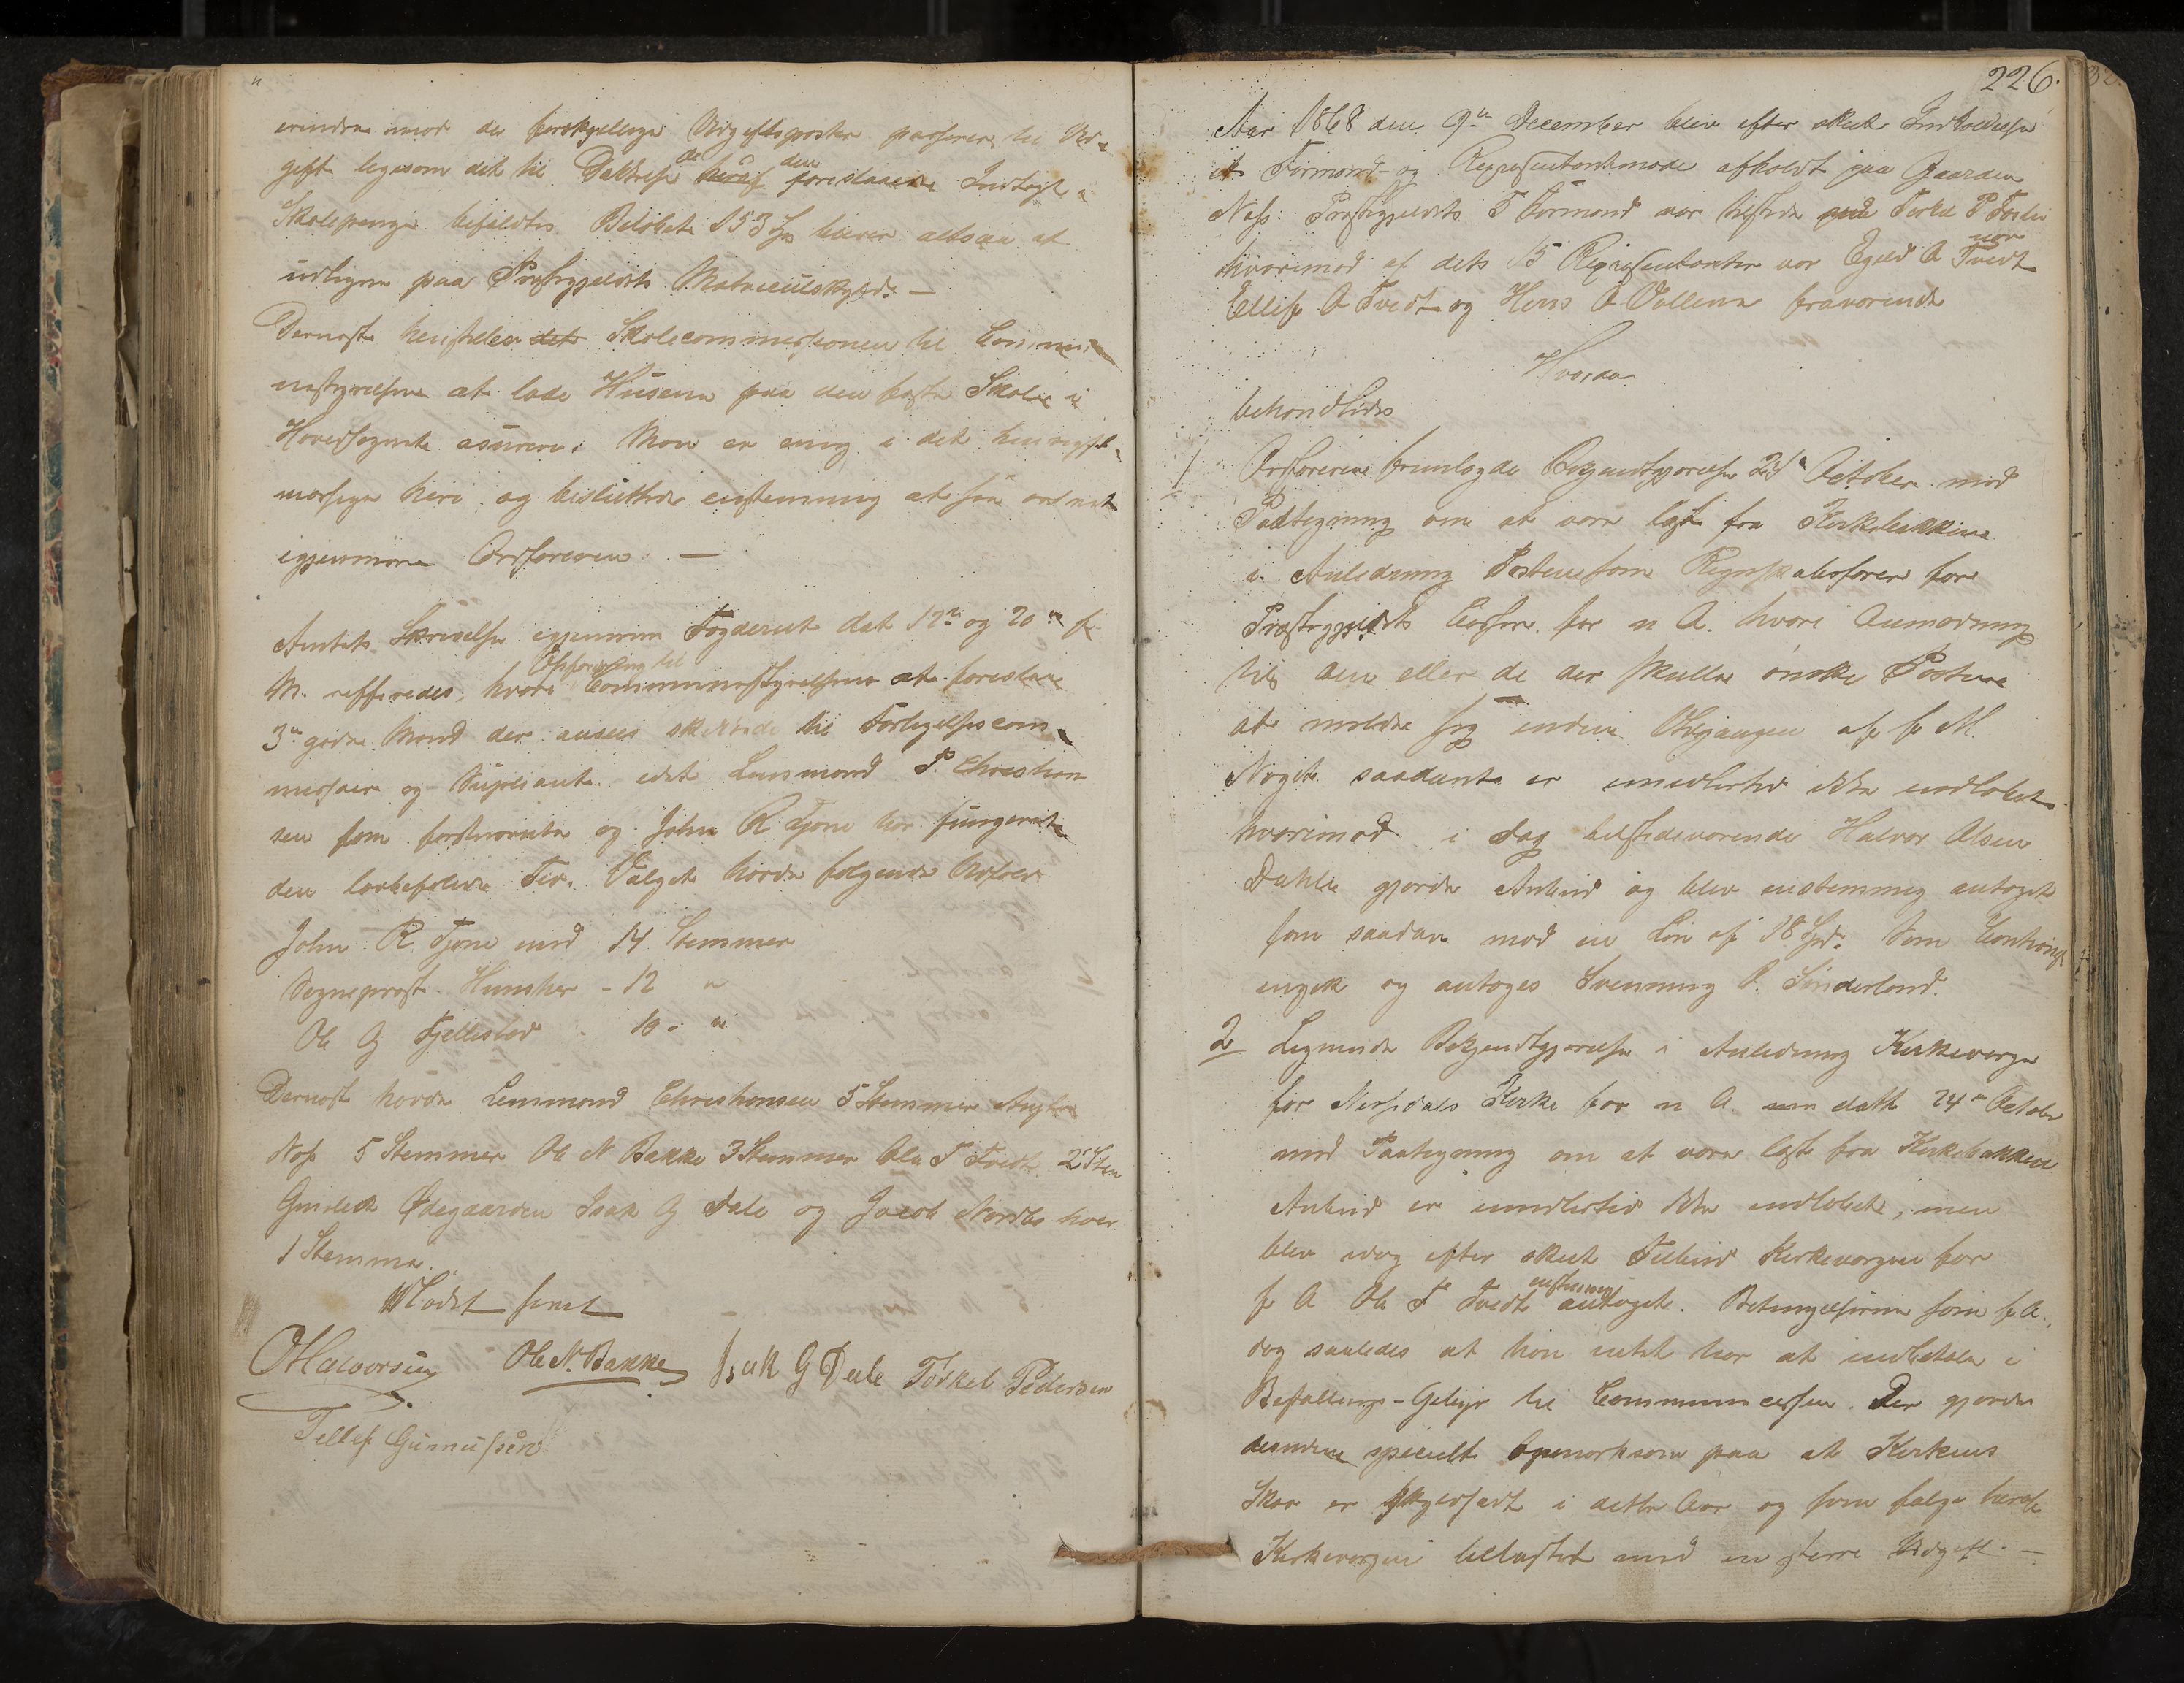 erindre mod de forskjellige Udgiftsposter passerer til Ud-
gift ligesom det til Dækkelse de heraf den foreslaaede Indtægt i
Skolepenge bifaldtes. Beløbet 153 Spd bliver altsaa at
udligne paa Præstegjeldets Matriculskyld. —
Dernæst henstiller det Skolecommissionen til Commu-
nestyrelsen at lade Husene paa den faste Skole i
Hovedsognet assurere. Man er enig i det hensigts-
mæssige heri og besluttede enstemmig at faa ordnet
igjennem Ordføreren. —
Amtets Skrivelse igjennem Fogderiet dat 12te og 20de f
M. refferedes, hvori Opfordring til Communestyrelsen at foreslaae
3de gode Mænd der ansees skikkede til Forligelsescom-
missair og Supleant idet Lensmand P. Christian
sen som førstnævnte og John R Tjøne har fungeret
den lovbefalede Tid. Valget havde følgende Udfald
John R Tjøne med 14 Stemmer
Sogneprest Hunsher - 12 "
Ole G Fjellestad - 10 - "
Dernæst havde Lensmand Christiansen 5 Stemmer
Næs 5 Stemmer Ole N Bakke 3 Stemmer Ole T Tvedt 2 Stem
Ødegaarden Isak G Dale og Jacob Nordbø hver
1 Stemme.
Mødet hævet
OHalvorsen Ole N. Bakke Isak G Dale Torkel Pedersen
Tellef Gunnufsen
226.
Aar 1868 den 9de December blev efter skeet Indkaldelse
et Formand- og Repræsentantmøde afholdt paa Gaarden
Næs: Præstegjeldets Formænd var tilstede Terkel P
hvorimod af dets 15 Repræsentanter var Egild O Tvedt
Ellef O Tvedt og Hans O Vallene fraværende
Hvorda
behandledes
1 Ordføreren fremlagde Bekjendtgjørelse 24de October med
Paategning om at være læst fra Kirkebakken
i Anledning Posten som Regnskabsfører for
Præstegjeldets Casser for n A. hvori Anmodning
til den eller de der skulde ønske Posten
at melde sig inden Udgangen af f M.
Noget saadant er imidlertid ikke indløbet
hvorimod i Dag tilstedeværende Halvor Olsen
Dahle gjorde Anbud og blev enstemmig antaget
som saadan mod en Løn af 18 Spd. Som Cautionist
indgik og antoges Svenning O. Sønderland.
2 Lignende Bekjendtgjørelse i Anledning Kirkeværge
for Nissedals Kirke for n A. datt 24de October
med Paategning om at være læst fra Kirkebakken
Anbud er imidlertid ikke indløbet, men
blev idag efter skeet Tilbud Kirkeværgen for
f A Ole T Tvedt enstemmig antaget. Betingelserne som f A.,
dog saaledes at han intet har at indbetale i
Befallings-Gebyr til Communecassen. Der gjordes
desuden specielt opmerksom paa at Kirkens
Skov er i dette Aar og som følge heraf
Kirkeværgen belastet med en større Udgift. —